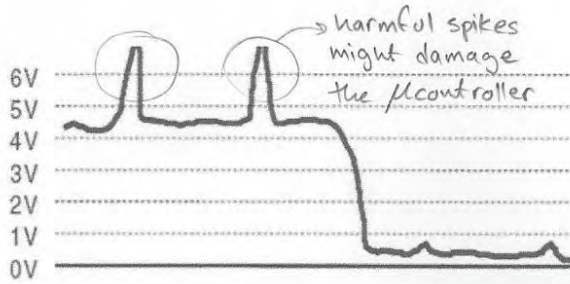 harmful spikes
might damage
the μcontroller
6V
5V
4V
3V
2V
1V
0V